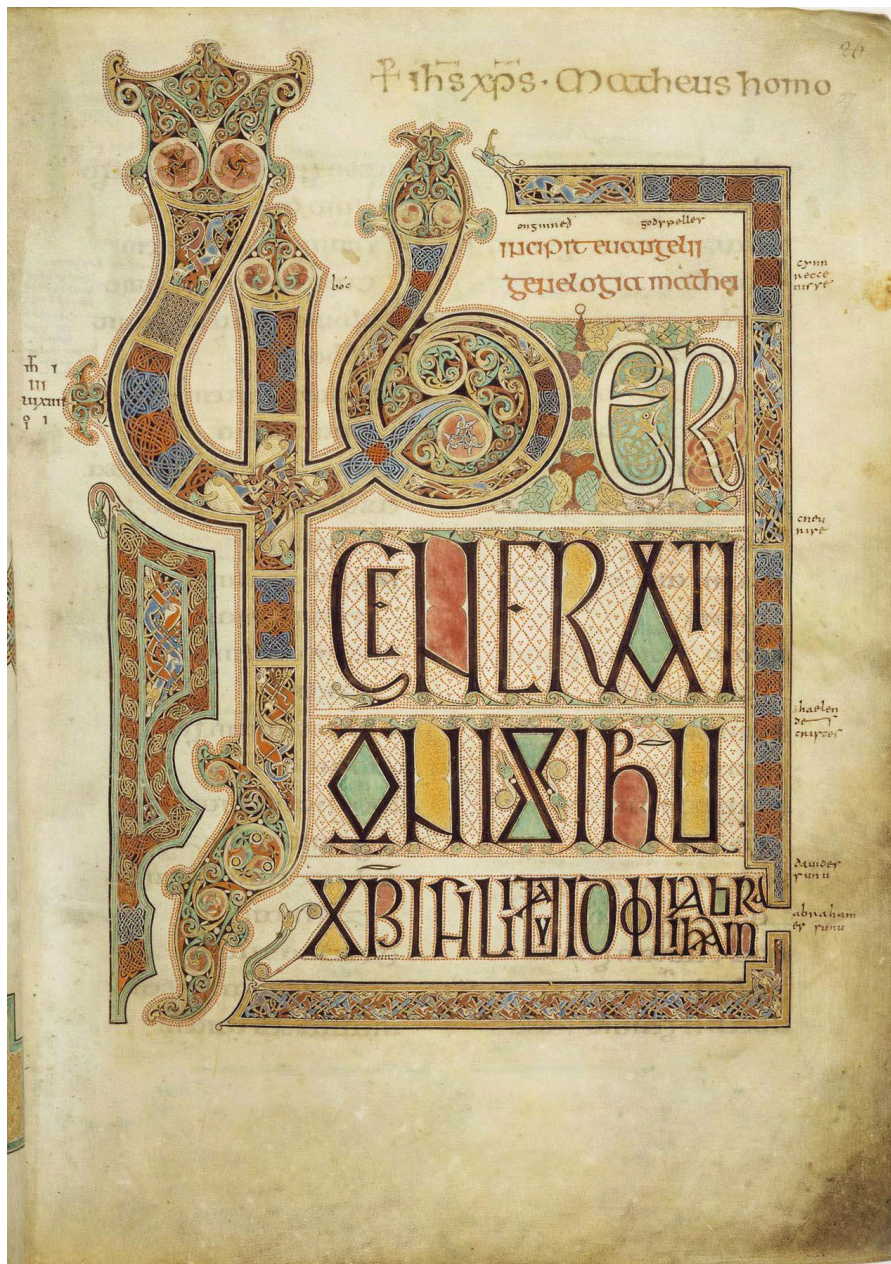 + ihs xps · Matheus homo
onginneð godspelles
incipit euangelii
genelogia mathei
boc
cynn
recce
nisse
LIBER
cneu
rise
GENERATI
haelen
des
cristes
ONIS IHU
dauides
sunu
XPI FILII DAVID FILII ABRAHAM
abraham
es sunu